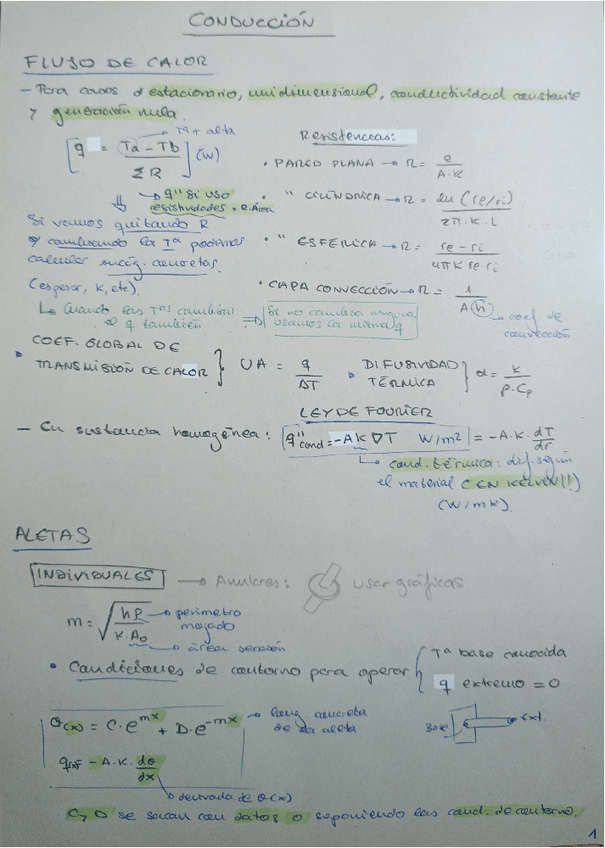 CONDUCCIÓN
FLUJO DE CALOR
- Para casos d estacionario, unidimensional, conductividad constante
y generación nula.
Tª + alta
[q = Ta - Tb / ΣR] (W)
↳ q" si uso
resistividades = R·Área
Si vamos quitando R
y cambiando la Tª podemos
calcular incóg. concretas
(espesor, k, etc).
↳ Cuando las Tªs cambian
el q también
⇒ Si no cambia ninguna
usamos la misma q
Resistencias:
• PARED PLANA → R = e / A·K
• " CILÍNDRICA → R = ln (re/ri) / 2π·K·L
• " ESFÉRICA → R = re - ri / 4πK re·ri
• CAPA CONVECCIÓN → R = 1 / A(h)
coef de
convección
• COEF. GLOBAL DE
TRANSMISIÓN DE CALOR } UA = q / ΔT
• DIFUSIVIDAD
TÉRMICA } α = k / ρ·Cp
LEY DE FOURIER
- En sustancia homogénea: q"cond = -AK∇T W/m² = -A·K·dT/dr
↳ cond. térmica: dif. según
el material (EN KELVIN!!)
(W/mK)
ALETAS
INDIVIDUALES → Anulares: usar gráficas
m = √(hP / K·A₀)
→ perímetro
mojado
→ área sección
• Condiciones de contorno para operar { Tª base conocida
q extremo = 0
Base
ext.
θ(x) = C·e^mx + D·e^-mx → long concreta
de la aleta
q(x)= -A·K·dθ/dx
↳ derivada de θ(x)
C y D se sacan con datos o suponiendo las cond. de contorno.
1